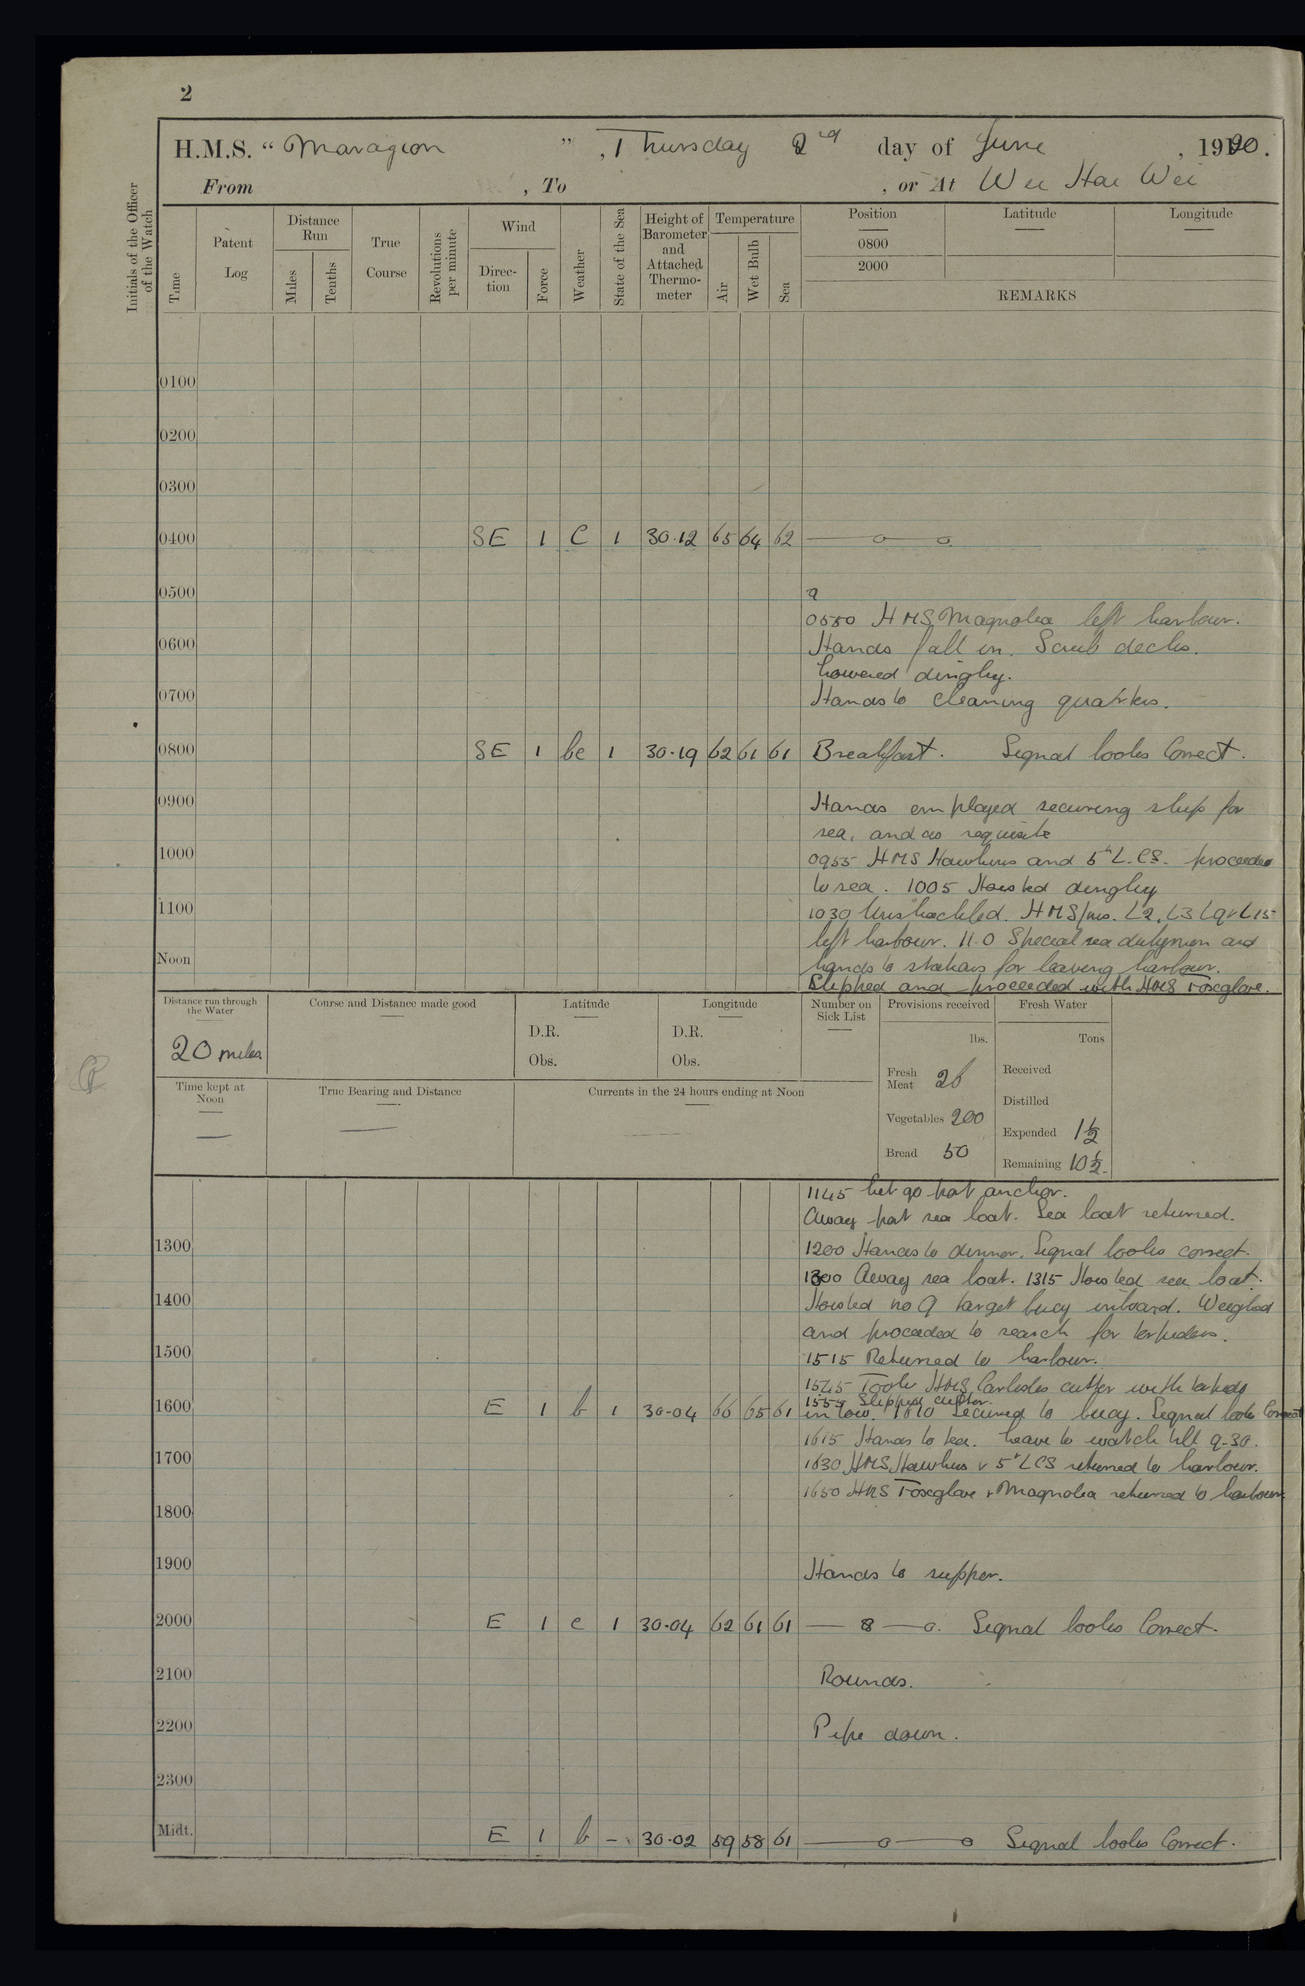 2
H.M.S. “ Marazion ” , Thursday 2nd day of June , 1920.
From , To , or At Wei Hai Wei
Initials of the Officer of the Watch
Time
Patent Log
Distance Run
Miles
Tenths
True Course
Revolutions per minute
Wind
Direction
Force
Weather
State of the Sea
Height of Barometer and Attached Thermometer
Temperature
Air
Wet Bulb
Sea
Position
0800
2000
Latitude
Longitude
REMARKS
0100
0200
0300
0400 SE 1 C 1 30.12 65 64 62 — o — o
0500
0550 HMS Magnolia left harbour.
0600 Hands fall in. Scrub decks.
Lowered dinghy.
0700 Hands to cleaning quarters.
0800 SE 1 bc 1 30.19 62 61 61 Breakfast. Signal books Correct.
0900 Hands employed securing ship for
sea, and as requisite
1000 0955 HMS Hawkins and 5th L.CS. proceeded
to sea. 1005 Hoisted dinghy
1100 1030 Unshackled. HMS/ms. L2, L3 L9 & L15
left harbour. 11.0 Special sea dutymen and
Noon hands to stations for leaving harbour.
Slipped and proceeded with HMS Foxglove.
Distance run through the Water
20 miles
Course and Distance made good
Latitude
D.R.
Obs.
Longitude
D.R.
Obs.
Number on Sick List
Provisions received
lbs.
Fresh Meat 26
Vegetables 200
Bread 50
Fresh Water
Tons
Received
Distilled
Expended 1½
Remaining 10½.
Time kept at Noon
—
True Bearing and Distance
—
Currents in the 24 hours ending at Noon
1145 Let go port anchor.
Away port sea boat. Sea boat returned.
1300 1200 Hands to dinner. Signal books correct.
1300 Away sea boat. 1315 Hoisted sea boat.
1400 Hoisted no 9 target buoy inboard. Weighed
and proceeded to search for torpedoes.
1500 1515 Returned to harbour.
1545 Took HMS Carlisles cutter with torpedo
1555 Slipped cutter.
1600 E 1 b 1 30.04 66 65 61 in tow. 1610 Secured to buoy. Signal books Correct
1615 Hands to tea. Leave to watch till 9-30.
1700 1630 HMS Hawkins & 5th LCS returned to harbour.
1650 HMS Foxglove & Magnolia returned to harbour.
1800
1900 Hands to supper.
2000 E 1 c 1 30.04 62 61 61 — 8 — o. Signal books Correct.
2100 Rounds.
2200 Pipe down.
2300
Midt. E 1 b - 30.02 59 58 61 — o — o Signal books Correct.